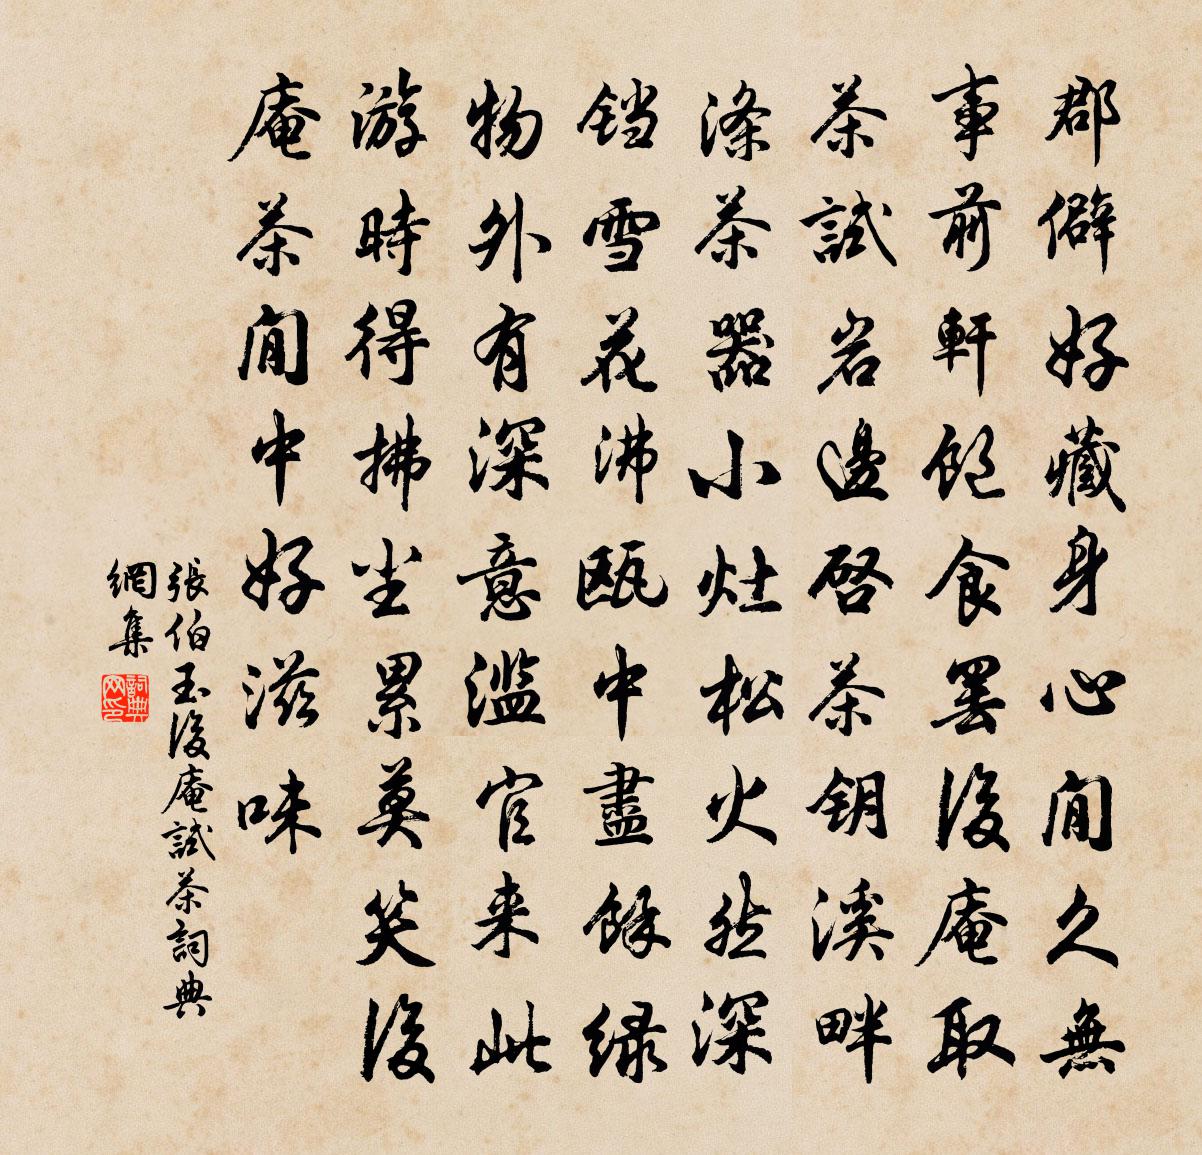 郡僻好藏身心閒久無
事前軒飽食罢後庵取
茶試岩邊啓茶钥溪畔
滌茶器小灶松火然深
铛雪花沸瓯中盡餘绿
物外有深意濫官来此
游時得拂尘累莫笑後
庵茶閒中好滋味
張伯玉後庵試茶詞典
網集
詞典
网印